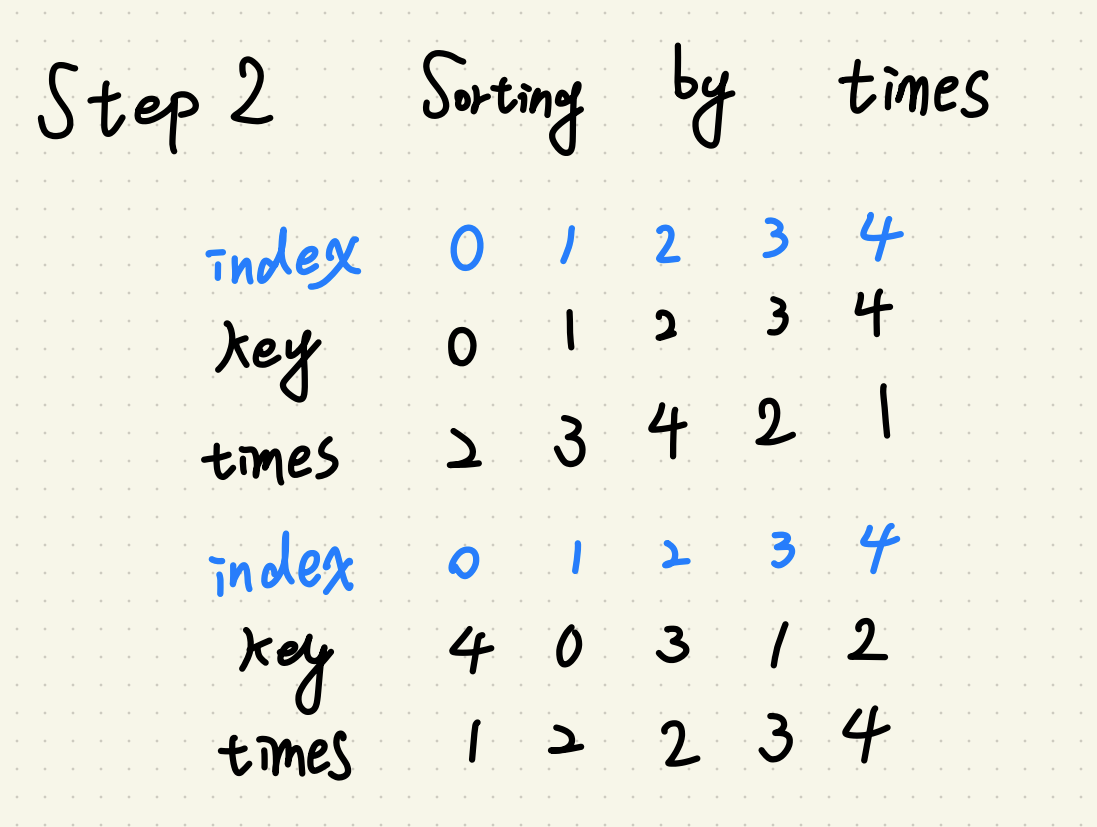 Step 2 Sorting by times
index 0 1 2 3 4
key 0 1 2 3 4
times 2 3 4 2 1
index 0 1 2 3 4
key 4 0 3 1 2
times 1 2 2 3 4